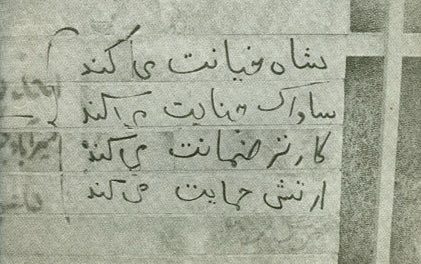 شاه خیانت می کند
ساواک جنایت می کند
کارتر ضمانت می کند
ارتش حمایت می کند